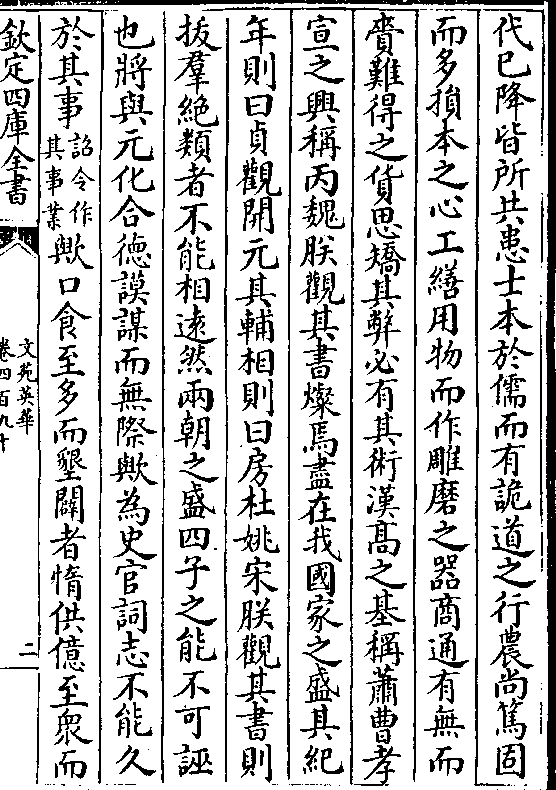 代已降皆所共患士本於儒而有詭道之行農尚篤固
而多揁本之心工繕用物而作雕磨之器商通有無而
賫難得之貨思矯其弊必有其術漢髙之基稱蕭曹孝
宣之興稱丙魏朕觀其書燦焉盡在我國家之盛其紀
年則曰貞觀開元其輔相則曰房杜姚宋朕觀其書則
拔羣絶類者不能相逺然兩朝之盛四子之能不可誣
也將與元化合德謨謀而無際歟為史官詞志不能久
於其事詔令作其事業歟口食至多而墾闢者惰供億至衆而
欽定四庫全書
文苑英華
卷四百九十
二